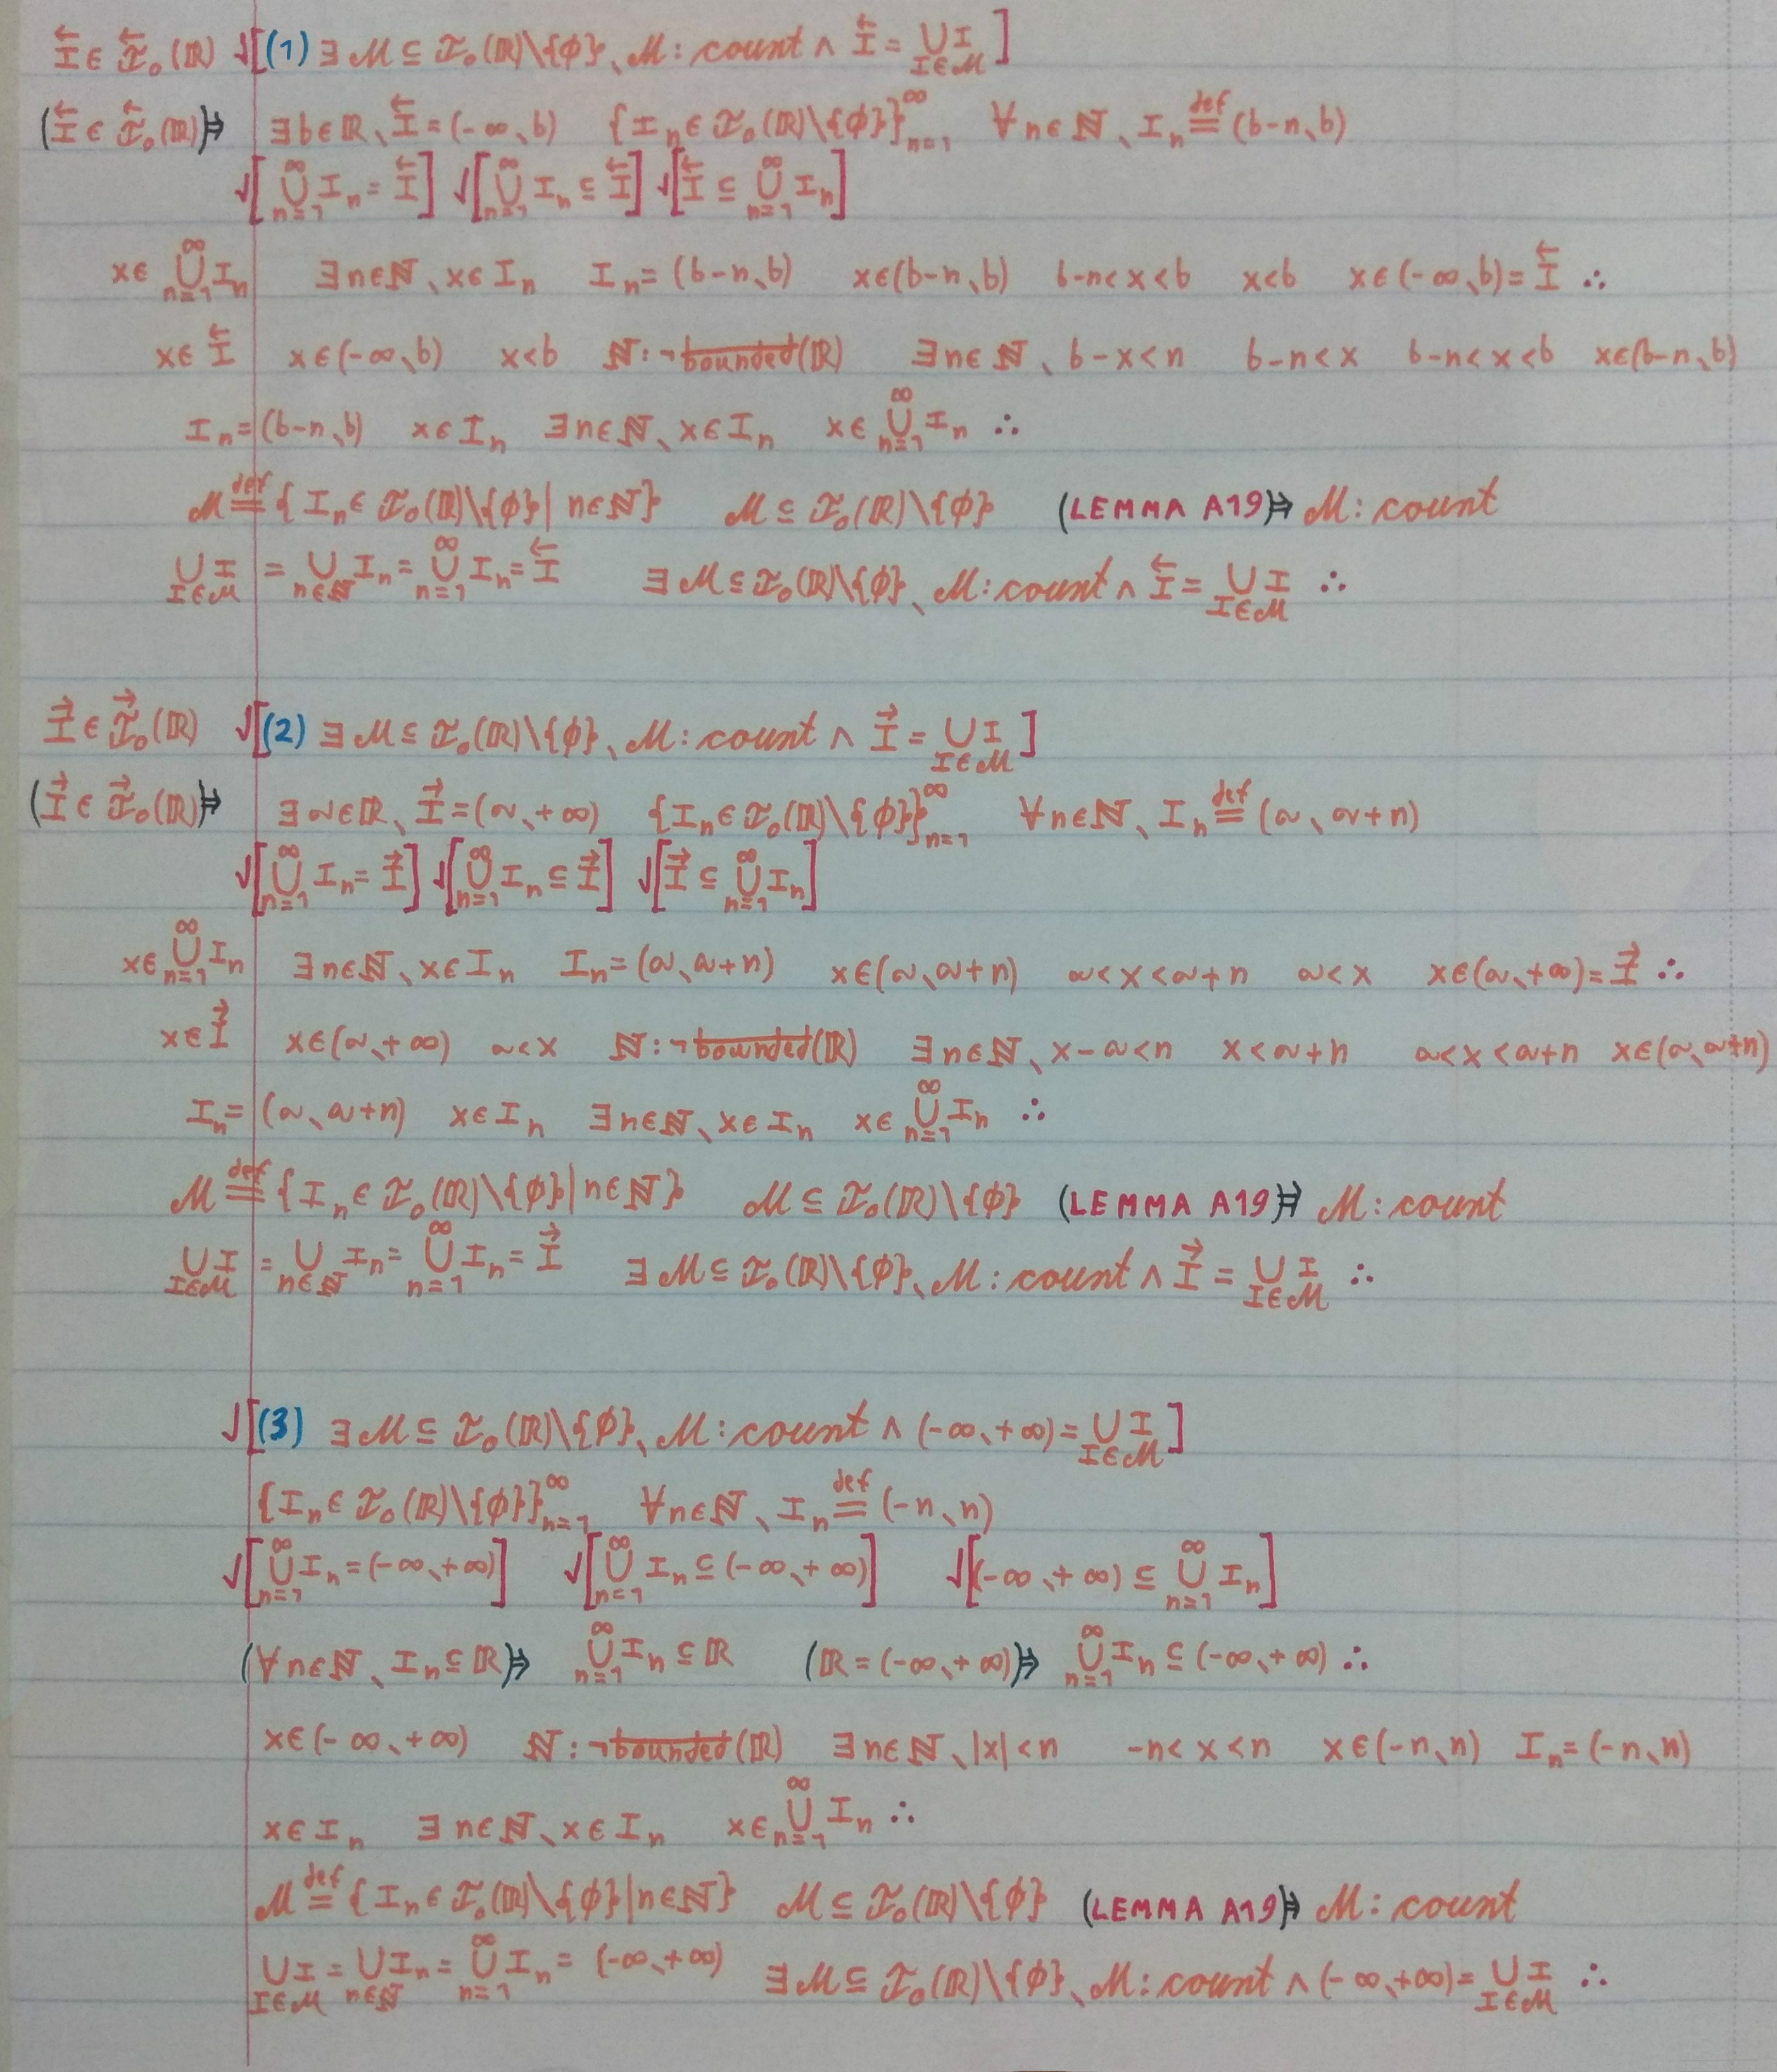 I⃖ ∈ ℐ⃖ₒ(ℝ) √[(1) ∃ℳ ⊆ ℐₒ(ℝ)\{ϕ}、ℳ: count ∧ I⃖ = ∪_{I∈ℳ} I]
(I⃖ ∈ ℐ⃖ₒ(ℝ))⇒ ∃b∈ℝ、I⃖ = (-∞、b) {Iₙ ∈ ℐₒ(ℝ)\{ϕ}}_{n=1}^∞ ∀n∈ℕ、Iₙ ≝ (b-n、b)
√[∪_{n=1}^∞ Iₙ = I⃖] √[∪_{n=1}^∞ Iₙ ⊆ I⃖] √[I⃖ ⊆ ∪_{n=1}^∞ Iₙ]
x∈ ∪_{n=1}^∞ Iₙ ∃n∈ℕ、x∈Iₙ Iₙ = (b-n、b) x∈(b-n、b) b-n<x<b x<b x∈(-∞、b) = I⃖ ∴
x∈I⃖ x∈(-∞、b) x<b ℕ: ¬b̅o̅u̅n̅d̅e̅d̅(ℝ) ∃n∈ℕ、b-x<n b-n<x b-n<x<b x∈(b-n、b)
Iₙ = (b-n、b) x∈Iₙ ∃n∈ℕ、x∈Iₙ x∈ ∪_{n=1}^∞ Iₙ ∴
ℳ ≝ {Iₙ ∈ ℐₒ(ℝ)\{ϕ} | n∈ℕ} ℳ ⊆ ℐₒ(ℝ)\{ϕ} (LEMMA A19)⇒ ℳ: count
∪_{I∈ℳ} I = ∪_{n∈ℕ} Iₙ = ∪_{n=1}^∞ Iₙ = I⃖ ∃ℳ ⊆ ℐₒ(ℝ)\{ϕ}、ℳ: count ∧ I⃖ = ∪_{I∈ℳ} I ∴
I⃗ ∈ ℐ⃗ₒ(ℝ) √[(2) ∃ℳ ⊆ ℐₒ(ℝ)\{ϕ}、ℳ: count ∧ I⃗ = ∪_{I∈ℳ} I]
(I⃗ ∈ ℐ⃗ₒ(ℝ))⇒ ∃a∈ℝ、I⃗ = (a、+∞) {Iₙ ∈ ℐₒ(ℝ)\{ϕ}}_{n=1}^∞ ∀n∈ℕ、Iₙ ≝ (a、a+n)
√[∪_{n=1}^∞ Iₙ = I⃗] √[∪_{n=1}^∞ Iₙ ⊆ I⃗] √[I⃗ ⊆ ∪_{n=1}^∞ Iₙ]
x∈ ∪_{n=1}^∞ Iₙ ∃n∈ℕ、x∈Iₙ Iₙ = (a、a+n) x∈(a、a+n) a<x<a+n a<x x∈(a、+∞) = I⃗ ∴
x∈I⃗ x∈(a、+∞) a<x ℕ: ¬b̅o̅u̅n̅d̅e̅d̅(ℝ) ∃n∈ℕ、x-a<n x<a+n a<x<a+n x∈(a、a+n)
Iₙ = (a、a+n) x∈Iₙ ∃n∈ℕ、x∈Iₙ x∈ ∪_{n=1}^∞ Iₙ ∴
ℳ ≝ {Iₙ ∈ ℐₒ(ℝ)\{ϕ} | n∈ℕ} ℳ ⊆ ℐₒ(ℝ)\{ϕ} (LEMMA A19)⇒ ℳ: count
∪_{I∈ℳ} I = ∪_{n∈ℕ} Iₙ = ∪_{n=1}^∞ Iₙ = I⃗ ∃ℳ ⊆ ℐₒ(ℝ)\{ϕ}、ℳ: count ∧ I⃗ = ∪_{I∈ℳ} I ∴
√[(3) ∃ℳ ⊆ ℐₒ(ℝ)\{ϕ}、ℳ: count ∧ (-∞、+∞) = ∪_{I∈ℳ} I]
{Iₙ ∈ ℐₒ(ℝ)\{ϕ}}_{n=1}^∞ ∀n∈ℕ、Iₙ ≝ (-n、n)
√[∪_{n=1}^∞ Iₙ = (-∞、+∞)] √[∪_{n=1}^∞ Iₙ ⊆ (-∞、+∞)] √[(-∞、+∞) ⊆ ∪_{n=1}^∞ Iₙ]
(∀n∈ℕ、Iₙ ⊆ ℝ)⇒ ∪_{n=1}^∞ Iₙ ⊆ ℝ (ℝ = (-∞、+∞))⇒ ∪_{n=1}^∞ Iₙ ⊆ (-∞、+∞) ∴
x∈(-∞、+∞) ℕ: ¬b̅o̅u̅n̅d̅e̅d̅(ℝ) ∃n∈ℕ、|x|<n -n<x<n x∈(-n、n) Iₙ = (-n、n)
x∈Iₙ ∃n∈ℕ、x∈Iₙ x∈ ∪_{n=1}^∞ Iₙ ∴
ℳ ≝ {Iₙ ∈ ℐₒ(ℝ)\{ϕ} | n∈ℕ} ℳ ⊆ ℐₒ(ℝ)\{ϕ} (LEMMA A19)⇒ ℳ: count
∪_{I∈ℳ} I = ∪_{n∈ℕ} Iₙ = ∪_{n=1}^∞ Iₙ = (-∞、+∞) ∃ℳ ⊆ ℐₒ(ℝ)\{ϕ}、ℳ: count ∧ (-∞、+∞) = ∪_{I∈ℳ} I ∴